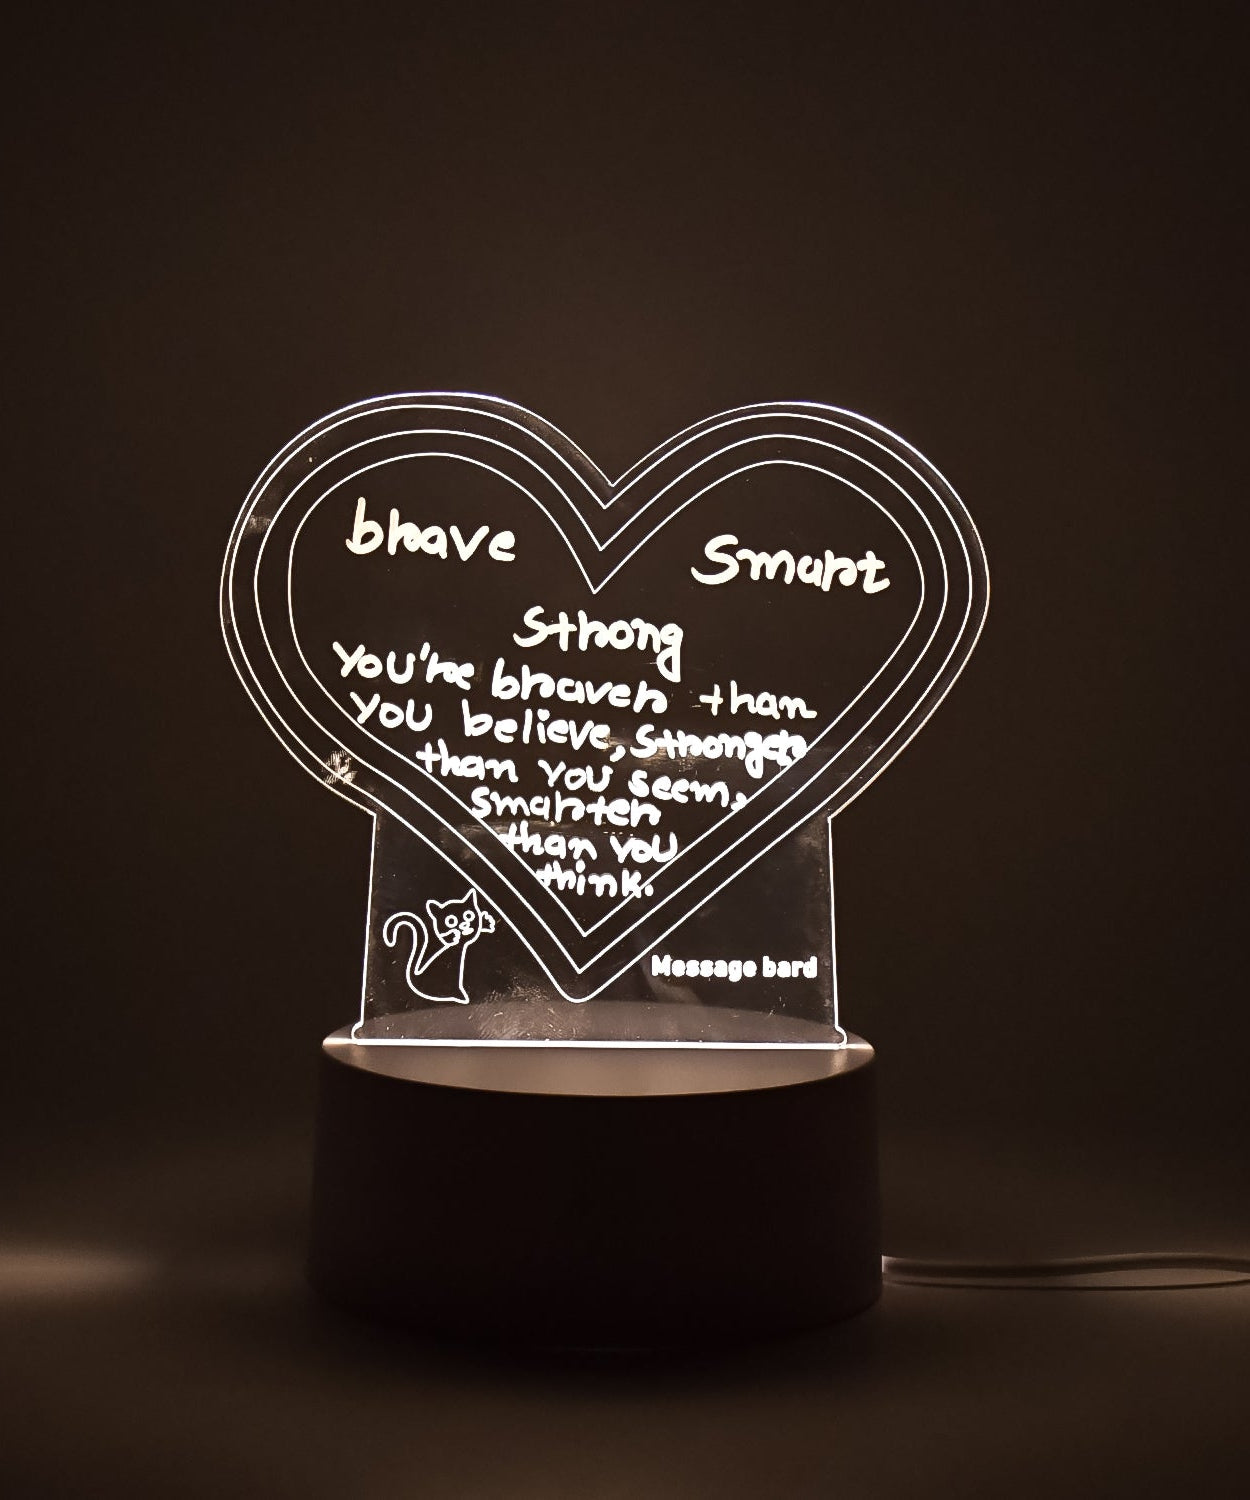 brave
Smart
Strong
You're braver than
you believe, Stronger
than you seem,
Smarter
than you
think.
Message bard